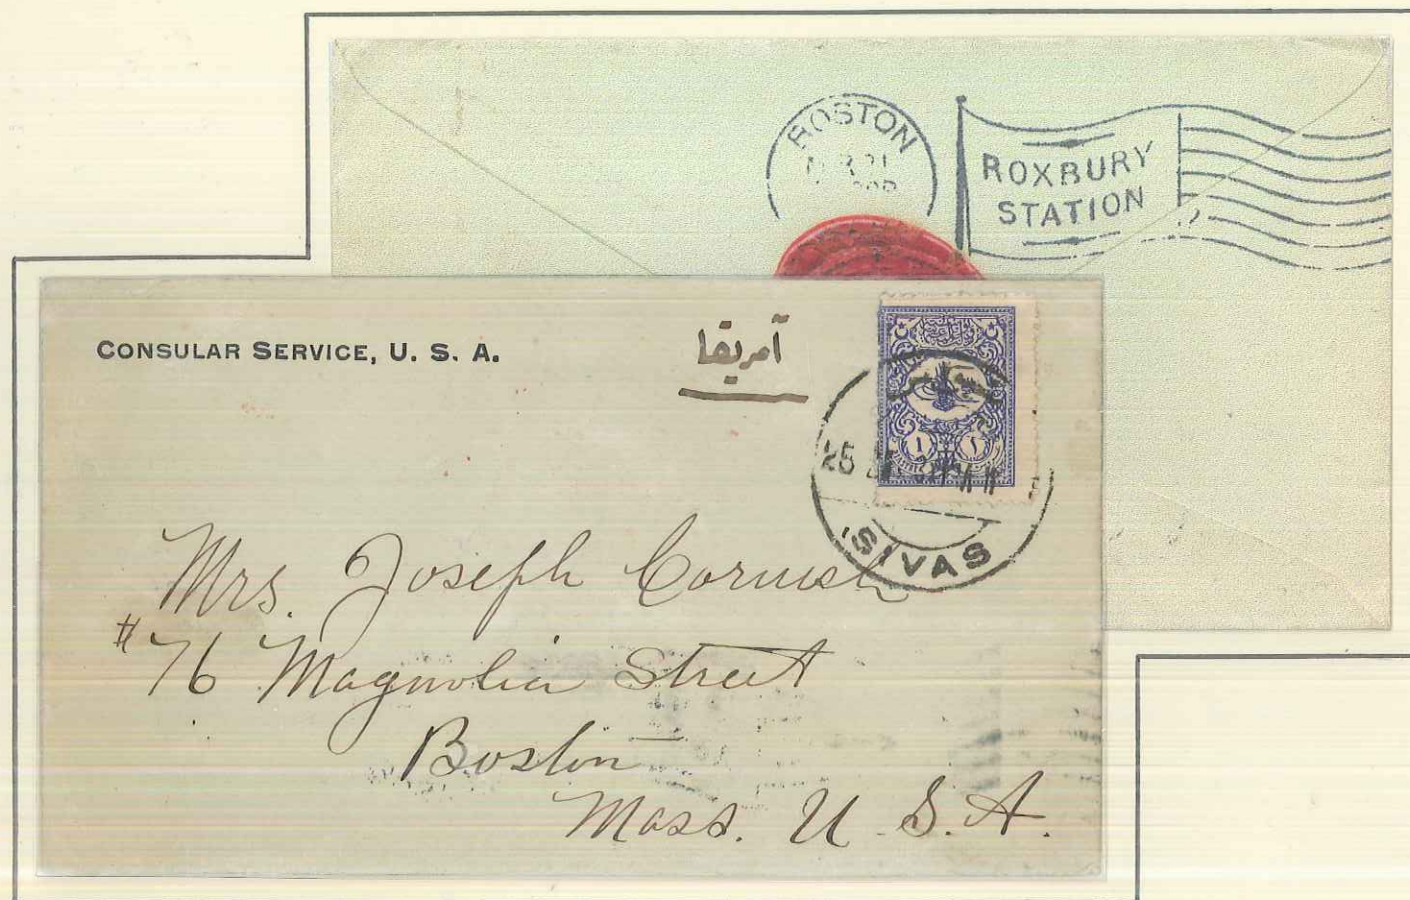 BOSTON
ROXBURY
STATION
CONSULAR SERVICE, U. S. A.
آمريقا
25
SIVAS
Mrs. Joseph Cornish
#76 Magnolia Street
Boston
Mass. U. S. A.